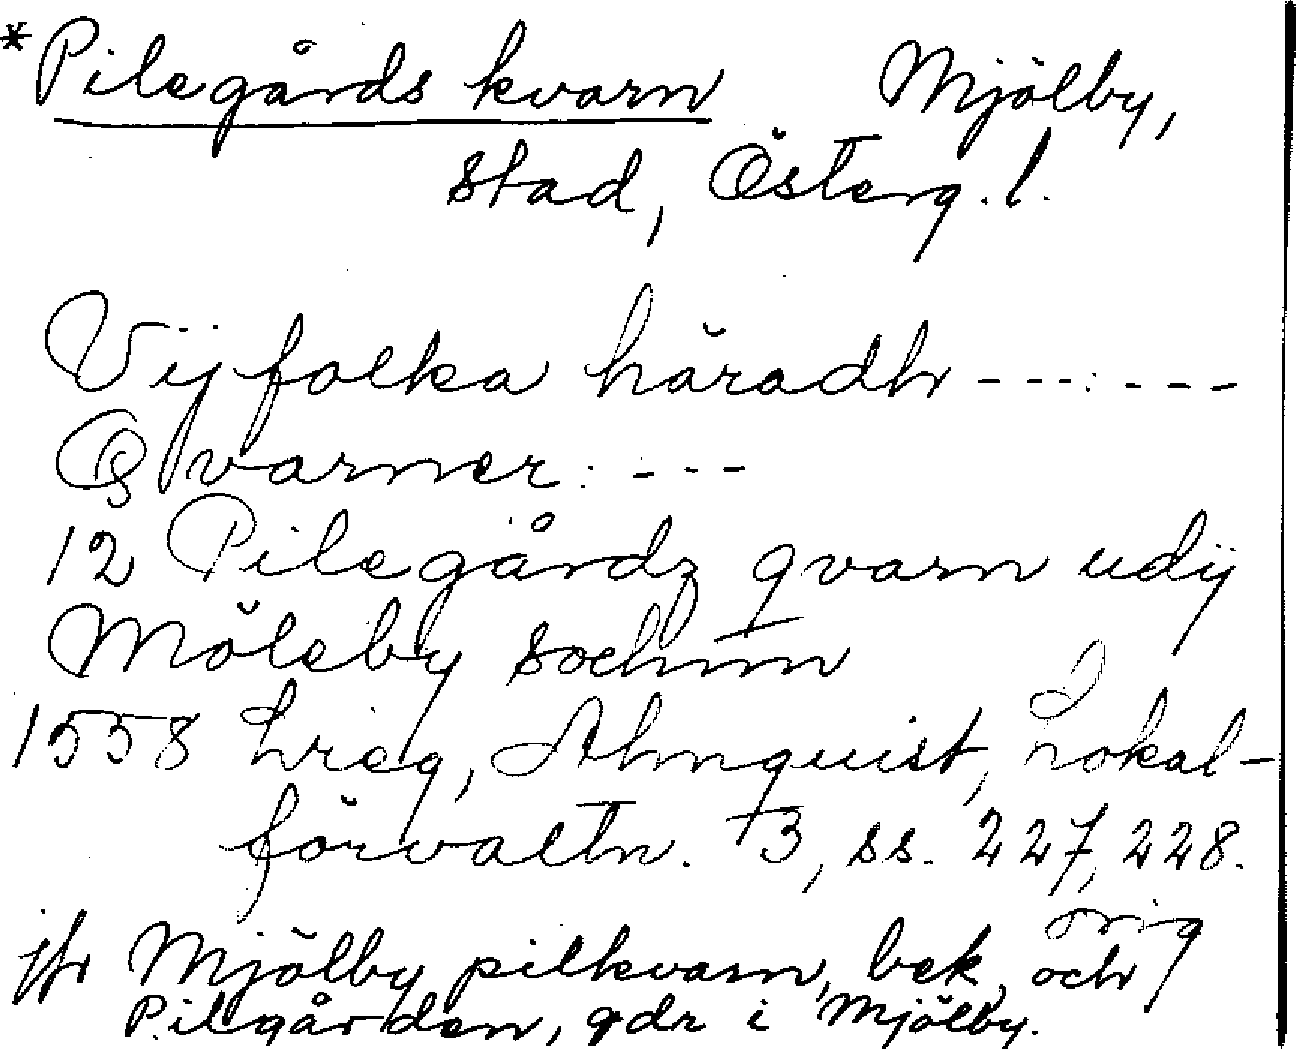 *Pilegårds kvarn Mjölby,
stad, Österg. l.
Vijfolka häradh - - - : - - -
Qvarner : - - -
12 Pilegårdz qvarn udij
Möleby sochnn
1558 hreg, Almquist, Lokal-
förvaltn. 3, ss. 227, 228.
orig
jfr Mjölby pilkvarn, bek. och
Pilgården, gdr i Mjölby.